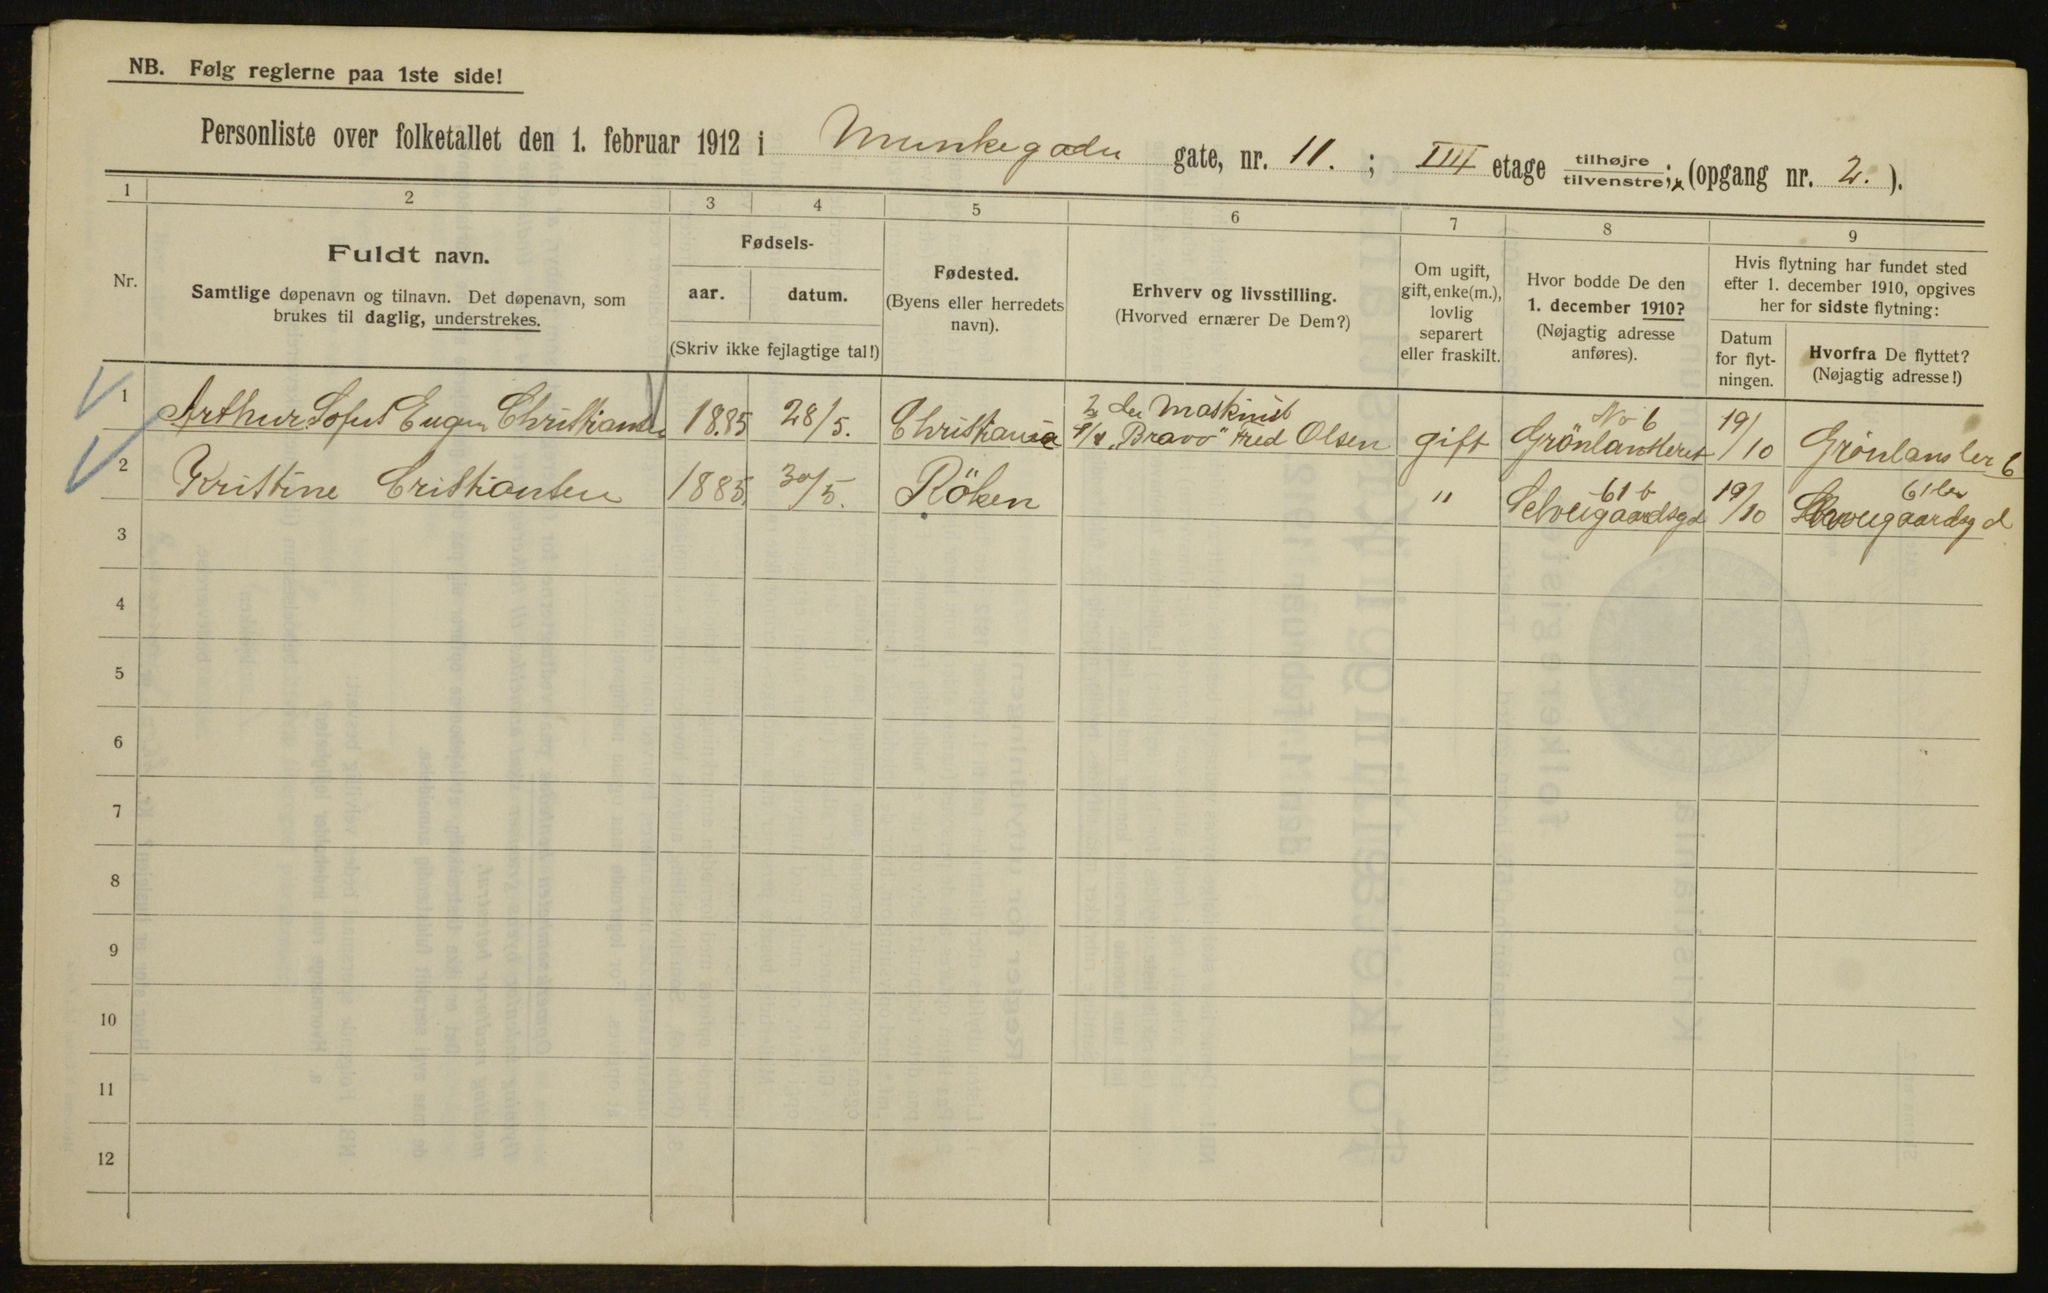 NB. Følg reglerne paa 1ste side!
Personliste over folketallet den 1. februar 1912 i Munkegaden gate, nr. 11. ; III etage tilhøjre tilvenstre; (opgang nr. 2. ).
1 2 3 4 5 6 7 8 9
Nr.
Fuldt navn.
Samtlige døpenavn og tilnavn. Det døpenavn, som
brukes til daglig, understrekes.
Fødsels-
aar. datum.
(Skriv ikke fejlagtige tal!)
Fødested.
(Byens eller herredets
navn).
Erhverv og livsstilling.
(Hvorved ernærer De Dem?)
Om ugift,
gift, enke(m.),
lovlig
separert
eller fraskilt.
Hvor bodde De den
1. december 1910?
(Nøjagtig adresse
anføres).
Hvis flytning har fundet sted
efter 1. december 1910, opgives
her for sidste flytning:
Datum
for flyt-
ningen.
Hvorfra De flyttet?
(Nøjagtig adresse!)
1 Arthur Sofus Eugen Christiansen 1885 28/5. Christiania 2den Maskinist
"Bravo" Fred Olsen gift No 6
Grönlandsleret 19/10 Grönlansler 6
2 Kristine Cristiansen 1885 30/5. Röken " 61 b 19/10 61
3
4
5
6
7
8
9
10
11
12